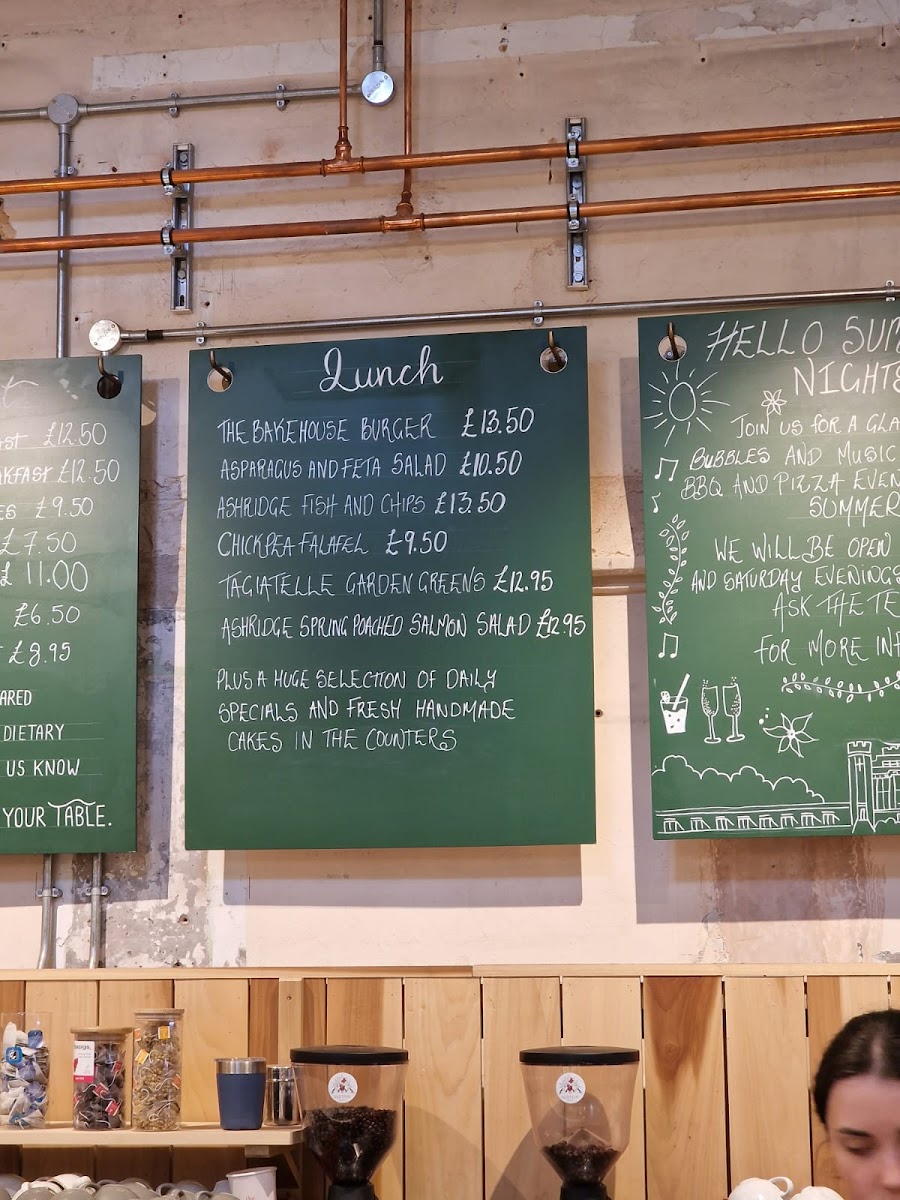 £12.50
£12.50
£9.50
£7.50
£11.00
£6.50
£8.95
DIETARY
US KNOW
YOUR TABLE.
Lunch
THE BAKEHOUSE BURGER £13.50
ASPARAGUS AND FETA SALAD £10.50
ASHRIDGE FISH AND CHIPS £13.50
CHICKPEA FALAFEL £9.50
TAGIATELLE GARDEN GREENS £12.95
ASHRIDGE SPRING POACHED SALMON SALAD £12.95
PLUS A HUGE SELECTION OF DAILY
SPECIALS AND FRESH HANDMADE
CAKES IN THE COUNTERS
HELLO
NIGHTS
JOIN US FOR A
BUBBLES AND MUSIC
BBQ AND PIZZA
SUMMER
WE WILL BE OPEN
AND SATURDAY EVENINGS
ASK THE
FOR MORE